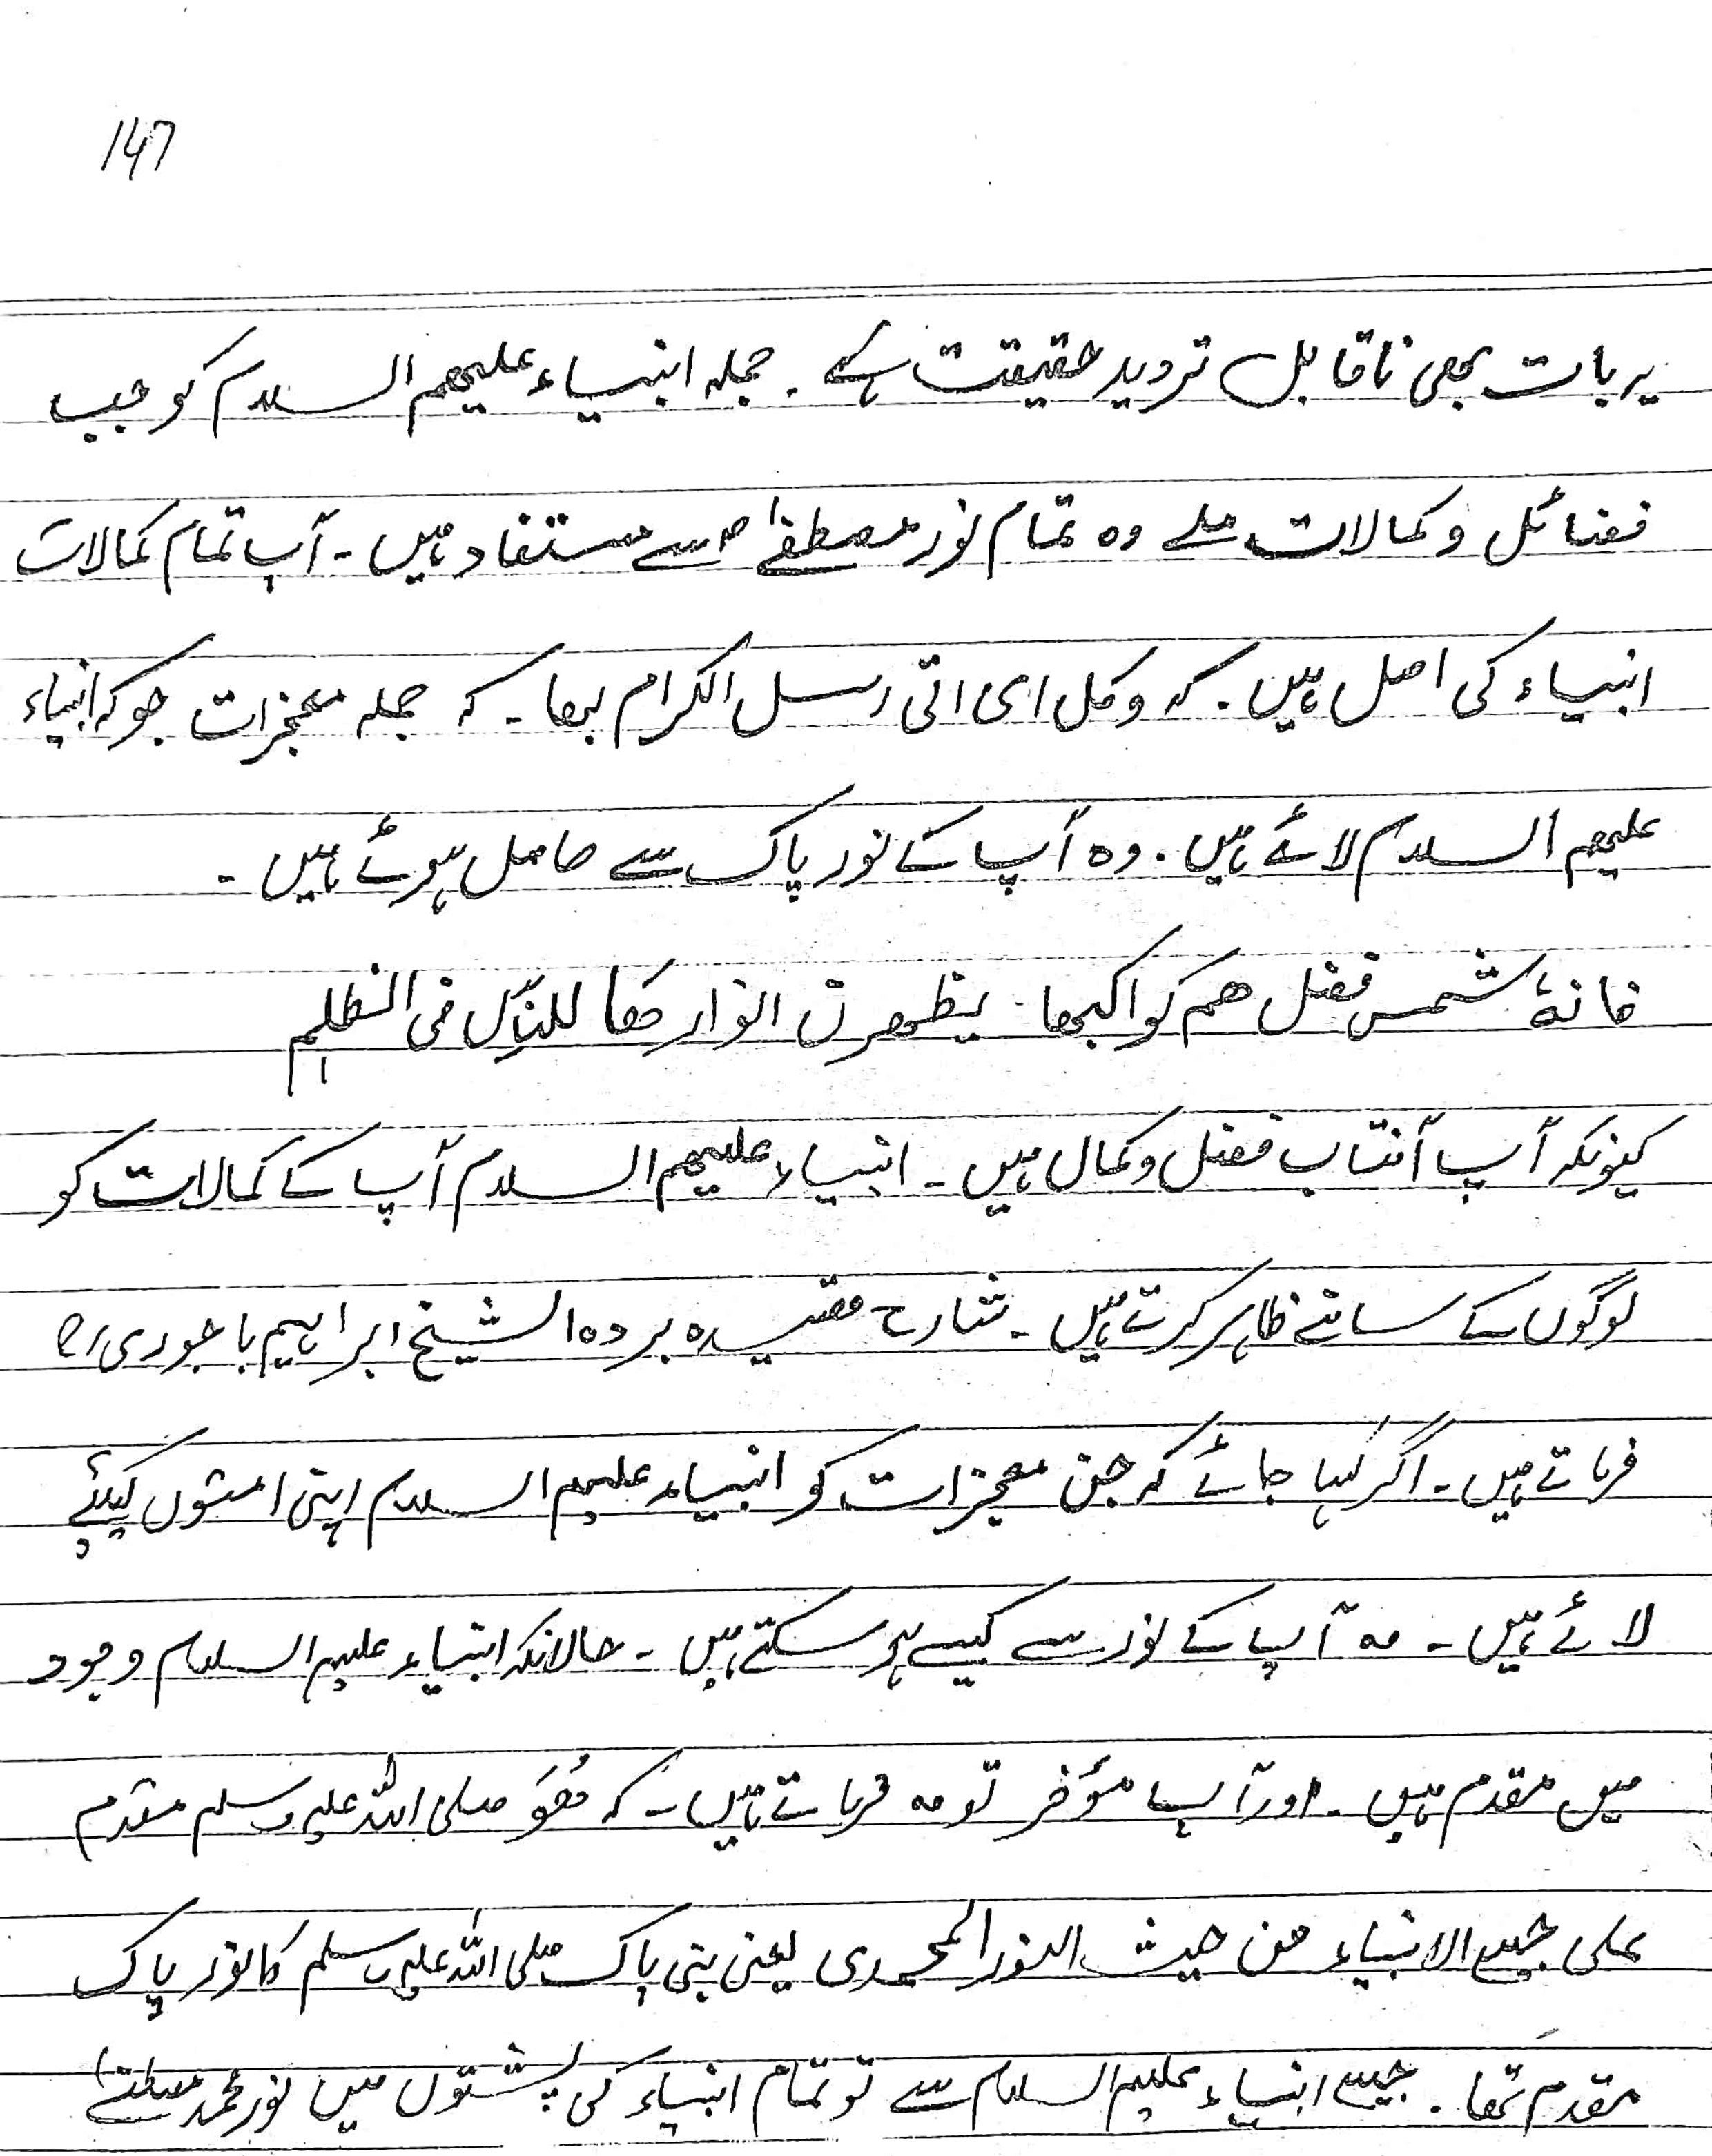 147
یہ بات بھی ناقابل تردید حقیقت ہے ۔ جملہ انبیاء علیھم السلام کو جب
فضائل و کمالات ملے وہ تمام نور مصطفےٰ ؐ سے مستفاد ہیں ۔ آپ تمام کمالات
انبیاء کی اصل ہیں ۔ کہ وکل ای اتی رسل الکرام بھا ۔ کہ جملہ معجزات جو کہ انبیاء
علیھم السلام لائے ہیں ۔ وہ آپ کے نور پاک سے حاصل ہوئے ہیں ۔
فانہٗ شمس فضل ھم کواکبھا یظھرن انوارھا للناس فی الظلم
کیونکہ آپ آفتاب فضل و کمال ہیں ۔ انبیاء علیھم السلام آپ کے کمالات کو
لوگوں کے سامنے ظاہر کرتے ہیں ۔ شارح قصیدہ بردہ الشیخ ابراہیم باجوری رح
فرماتے ہیں ۔ اگر کہا جائے کہ جن معجزات کو انبیاء علیہم السلام اپنی امتوں کیلئے
لائے ہیں ۔ وہ آپ کے نور سے کیسے ہو سکتے ہیں ۔ حالانکہ انبیاء علیہم السلام وجود
میں مقدم ہیں ۔ اور آپ مؤخر تو وہ فرماتے ہیں ۔ کہ ھُوَ صلی اللہ علیہ وسلم مقدم
علی جمیع الانبیاء من حیث النور المحمدی یعنی نبی پاک صلی اللہ علیہ وسلم کا نور پاک
مقدم تھا ۔ جمیع انبیاء علیہم السلام سے تو تمام انبیاء کی پشتوں میں نور محمد مصطفےٰ